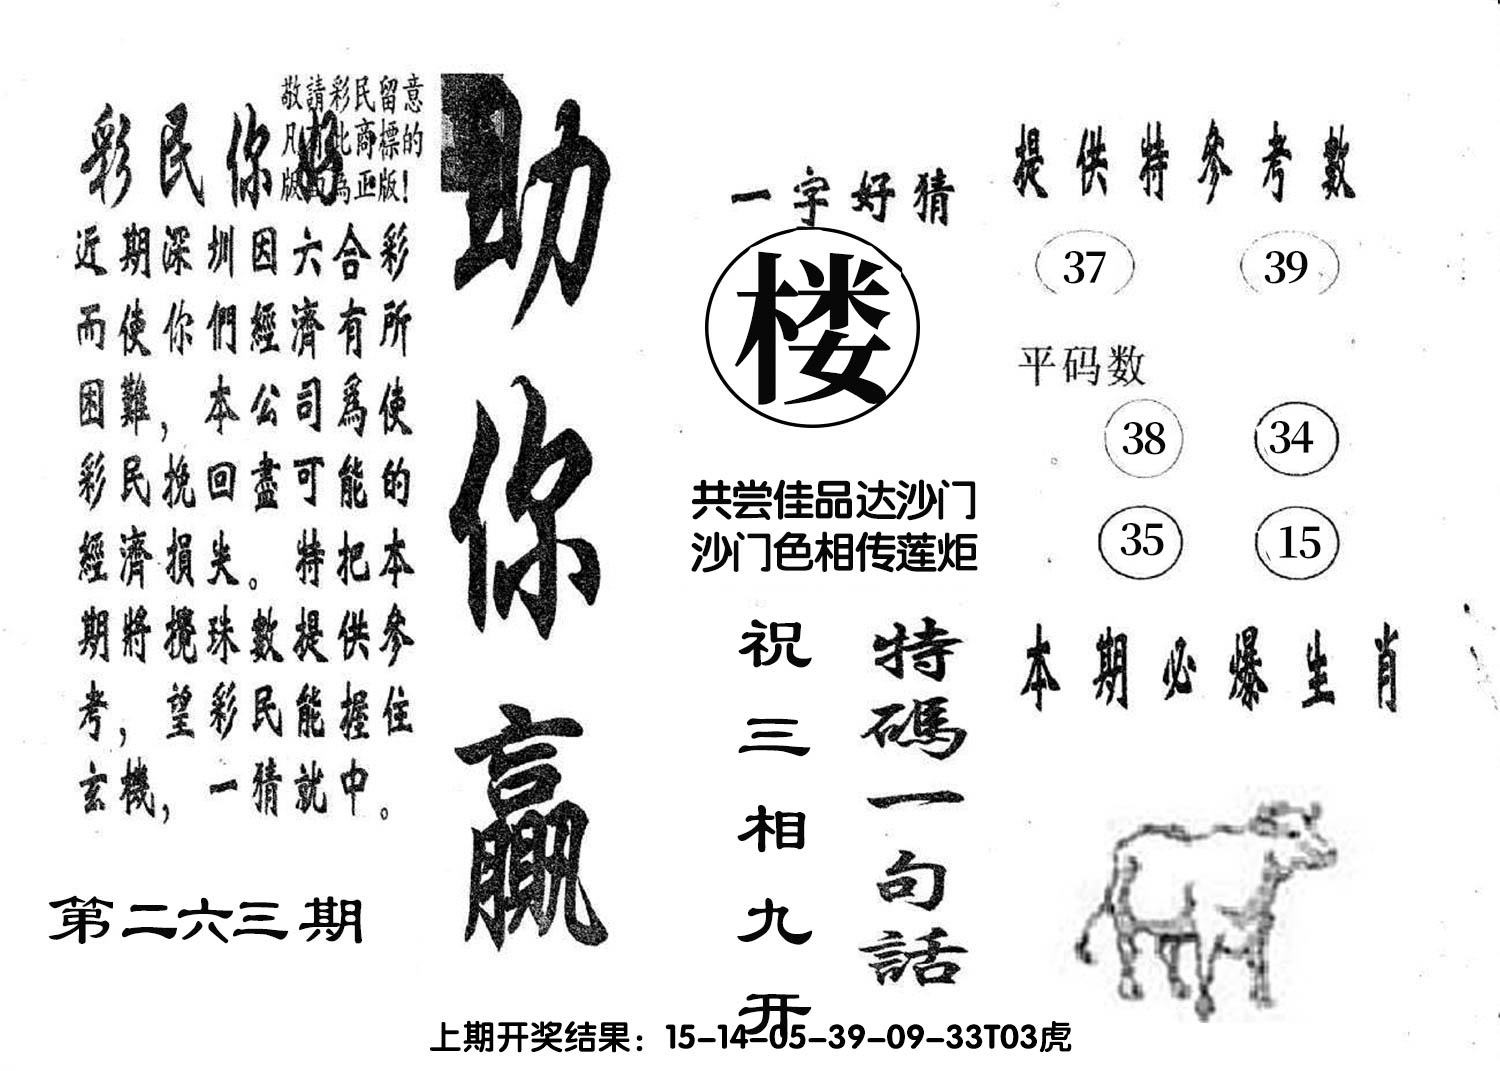 敬請彩民留意
凡有此商標的
版面為正版！
彩民你好
近期深圳因六合彩
而使你們經濟有所
困難，本公司爲使
彩民挽回盡可能的
經濟損失。特把本
期將攪珠數提供參
考，望彩民能握住
玄機，一猜就中。
第二六三期
助你贏
一字好猜
楼
共尝佳品达沙门
沙门色相传莲炬
特碼一句話
祝三相九开
提供特參考數
37 39
平码数
38 34
35 15
本期必爆生肖
上期开奖结果：15-14-05-39-09-33T03虎